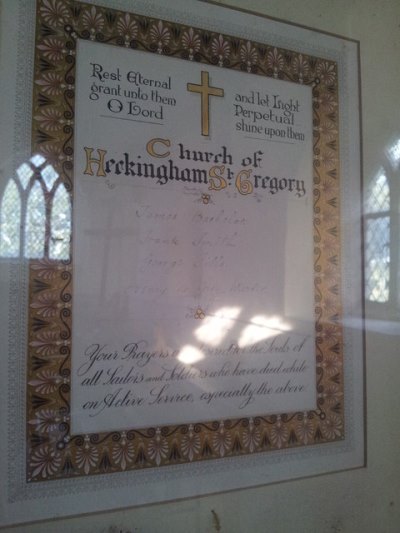 Rest Eternal
grant unto them
O Lord
and let Light
Perpetual
shine upon them
Church of
Heckingham St Gregory
James
Frank Smith
George
Your Prayers for the Souls of
all Sailors and Soldiers who have died while
on Active Service, especially the above